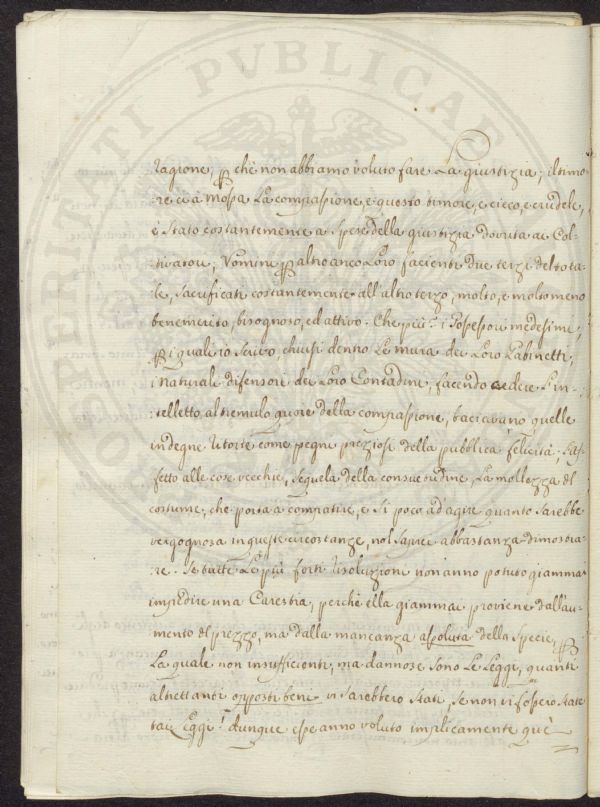 PROSPERITATI PVBLICAE
ragione, p chè non abbiamo voluto fare la giustizia; il timo
re ce à mossa la compassione, e questo timore, e cieco, e crudele,
è stato costantemente a spese della giustizia dovuta ai Col-
tivatori, Uomini p altro anco loro facienti due terzi del tota
le, sacrificati costantemente all'altro terzo, molto, e molto meno
benemerito, bisognoso, ed attivo. Che più? i Possessori medesimi,
p i quali io scrivo, chiusi dentro le mura dei loro Gabinetti,
i naturali difensori dei loro Contadini, facendo cedere l'in-
telletto al tremulo quore della compassione, baciavano quelle
indegne ritorte come pegni preziosi della pubblica felicità; l'af-
fetto alle cose vecchie, sequela della consuetudine, la mollezza del
costume, che porta a compatire, e sì poco ad agire quanto sarebbe
vergognosa in queste circostanze, nol saprei abbastanza dimostra-
re. Se tutte le più forti risoluzioni non anno potuto giammai
impedire una Carestia, perchè ella giammai proviene dall'au-
mento del prezzo, ma dalla mancanza assoluta della specie, p
la quale non insufficienti, ma dannose sono le Leggi, quanti
altrettanti opposti beni vi sarebbero stati, se non vi fossero state
tai Leggi! dunque esse anno voluto implicamente que-